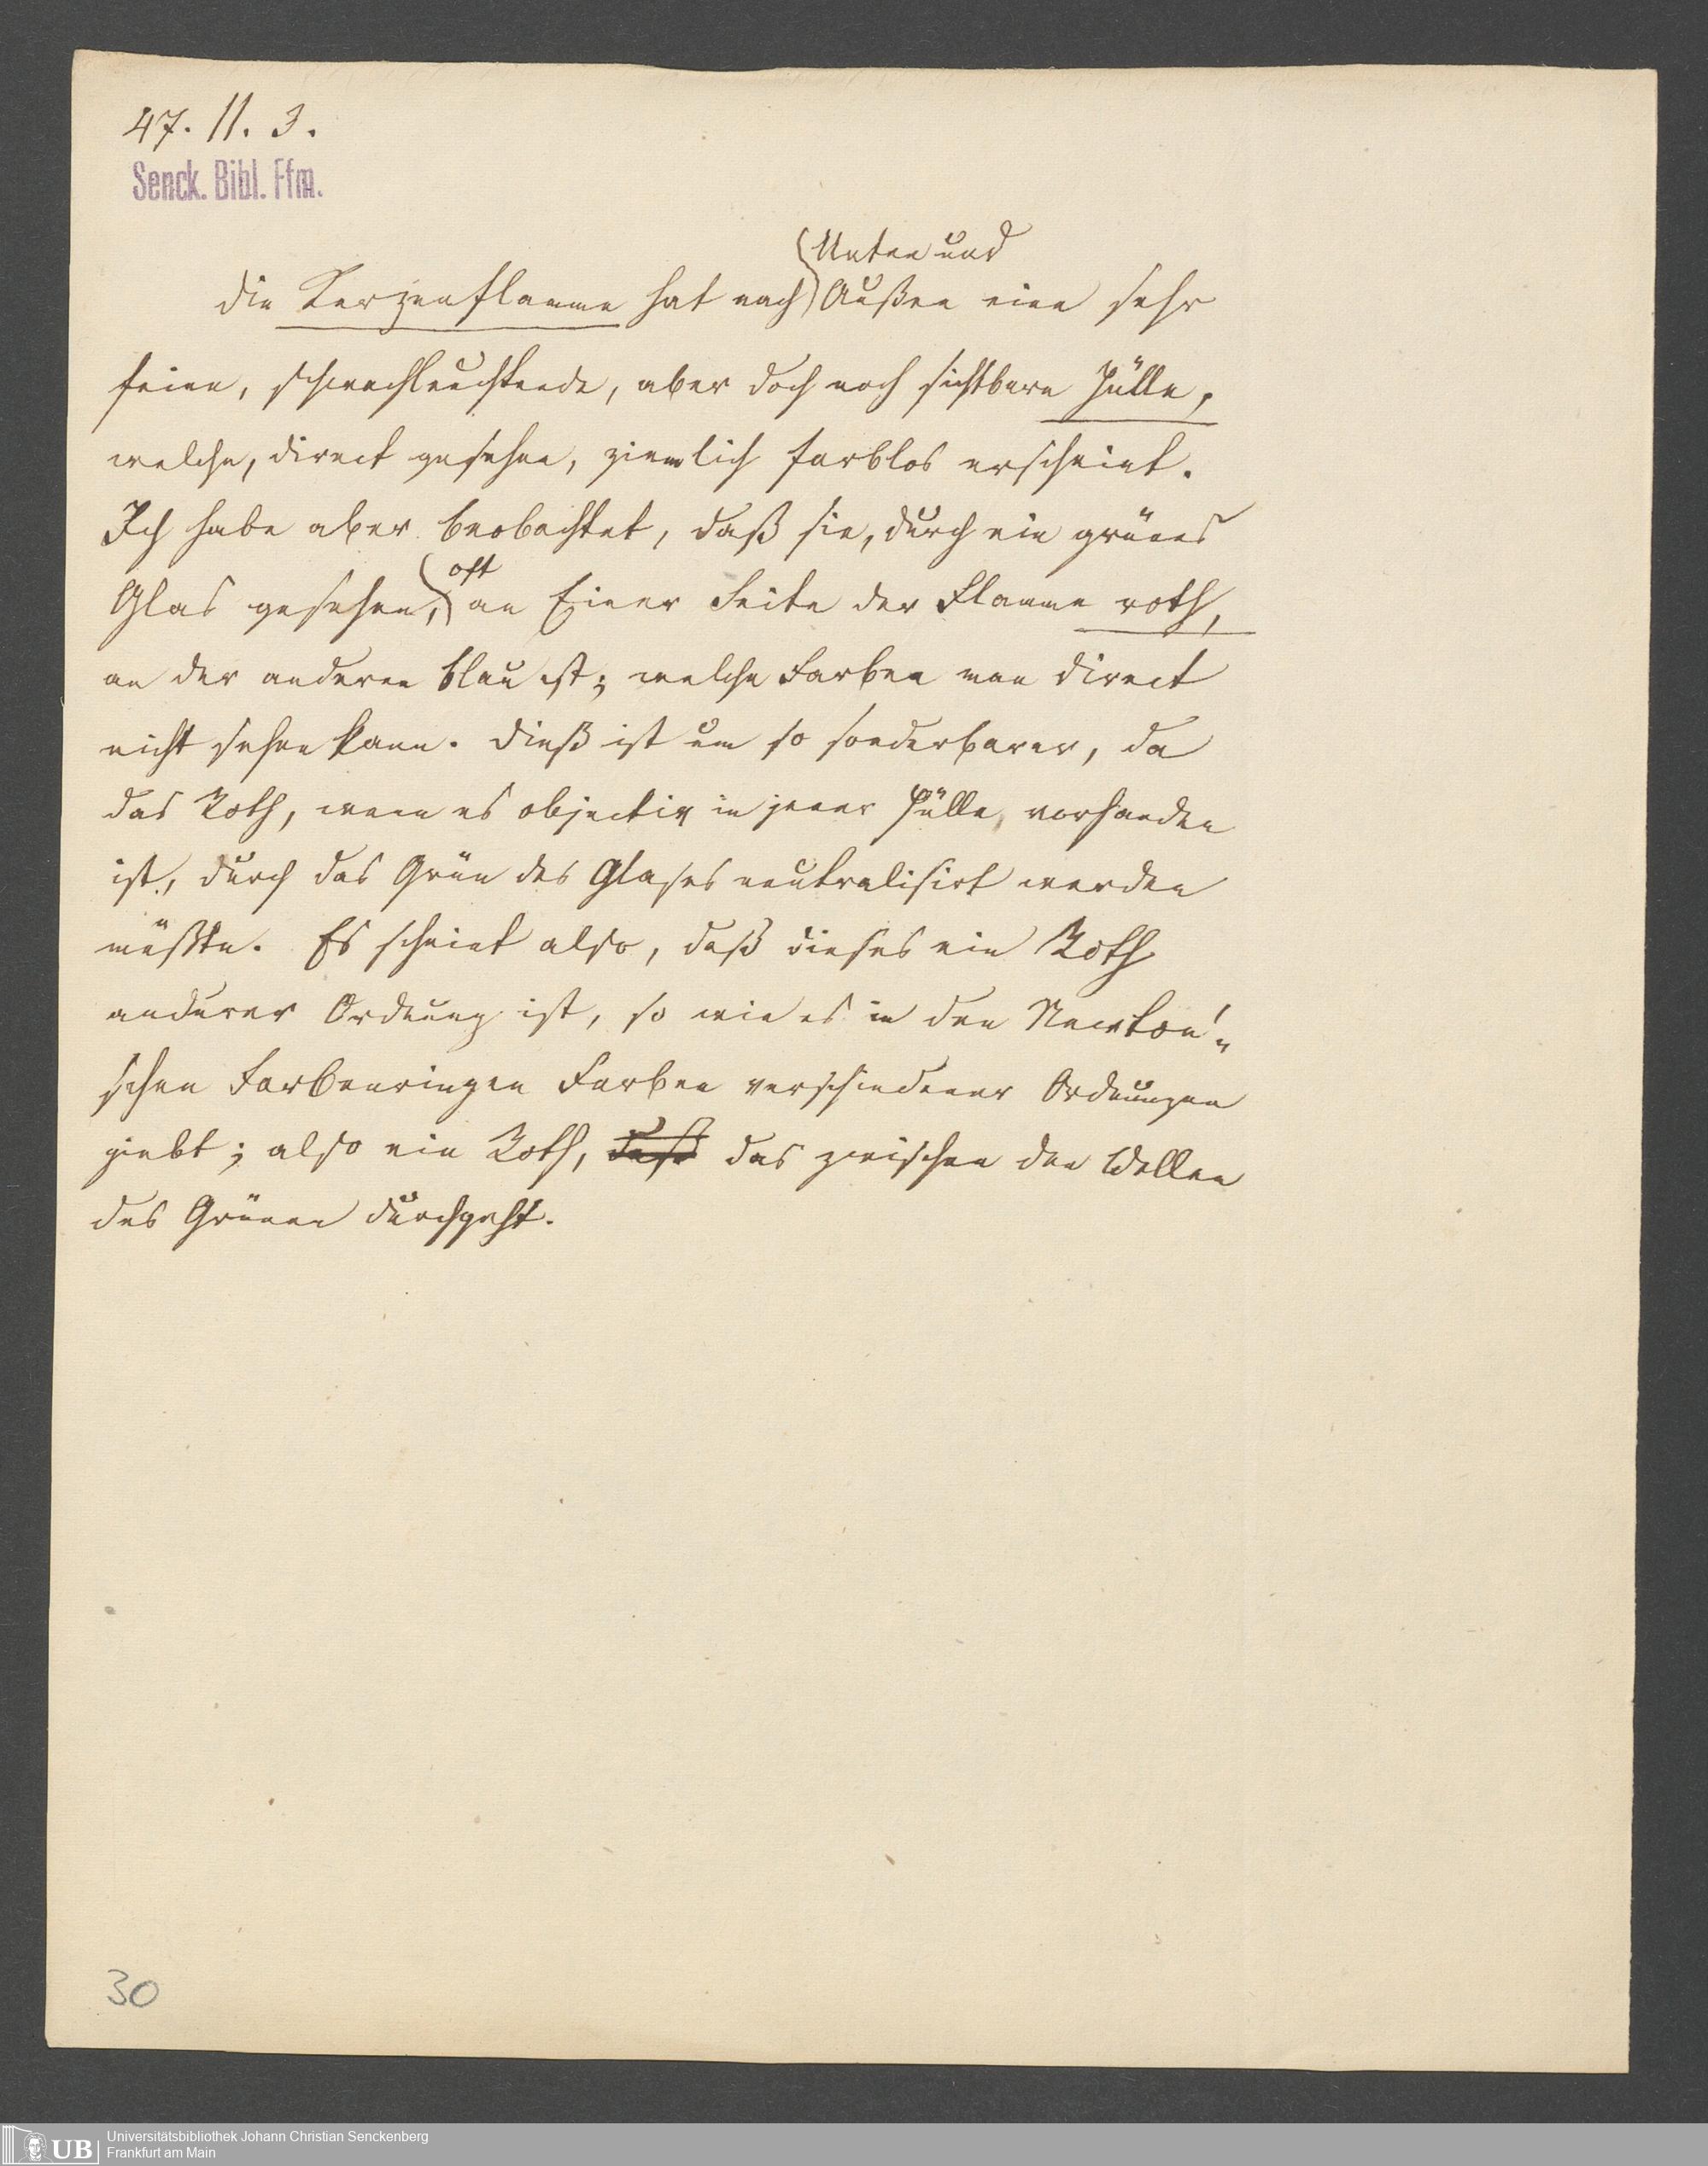 47. 11. 3.
Senck. Bibl. Ffm.
Unten und
Die Kerzenflamme hat nach Außen eine sehr
feine, schwachleuchtende, aber doch noch sichtbare Hülle,
welche, direct gesehen, ziemlich farblos erscheint.
Ich habe aber beobachtet, daß sie, durch ein grünes
oft
Glas gesehen, an Einer Seite der Flamme roth,
an der anderen blau ist; welche Farben man direct
nicht sehen kann. Dieß ist um so sonderbarer, da
das Roth, wenn es objectiv in jener Hülle vorhanden
ist, durch das Grün des Glases neutralisirt werden
müßte. Es scheint also, daß dieses ein Roth
anderer Ordnung ist, so wie es in den Newton'-
schen Farbenringen Farben verschiedener Ordnungen
giebt; also ein Roth, daß das zwischen den Wellen
des Grünen durchgeht.
30
UB
Universitätsbibliothek Johann Christian Senckenberg
Frankfurt am Main